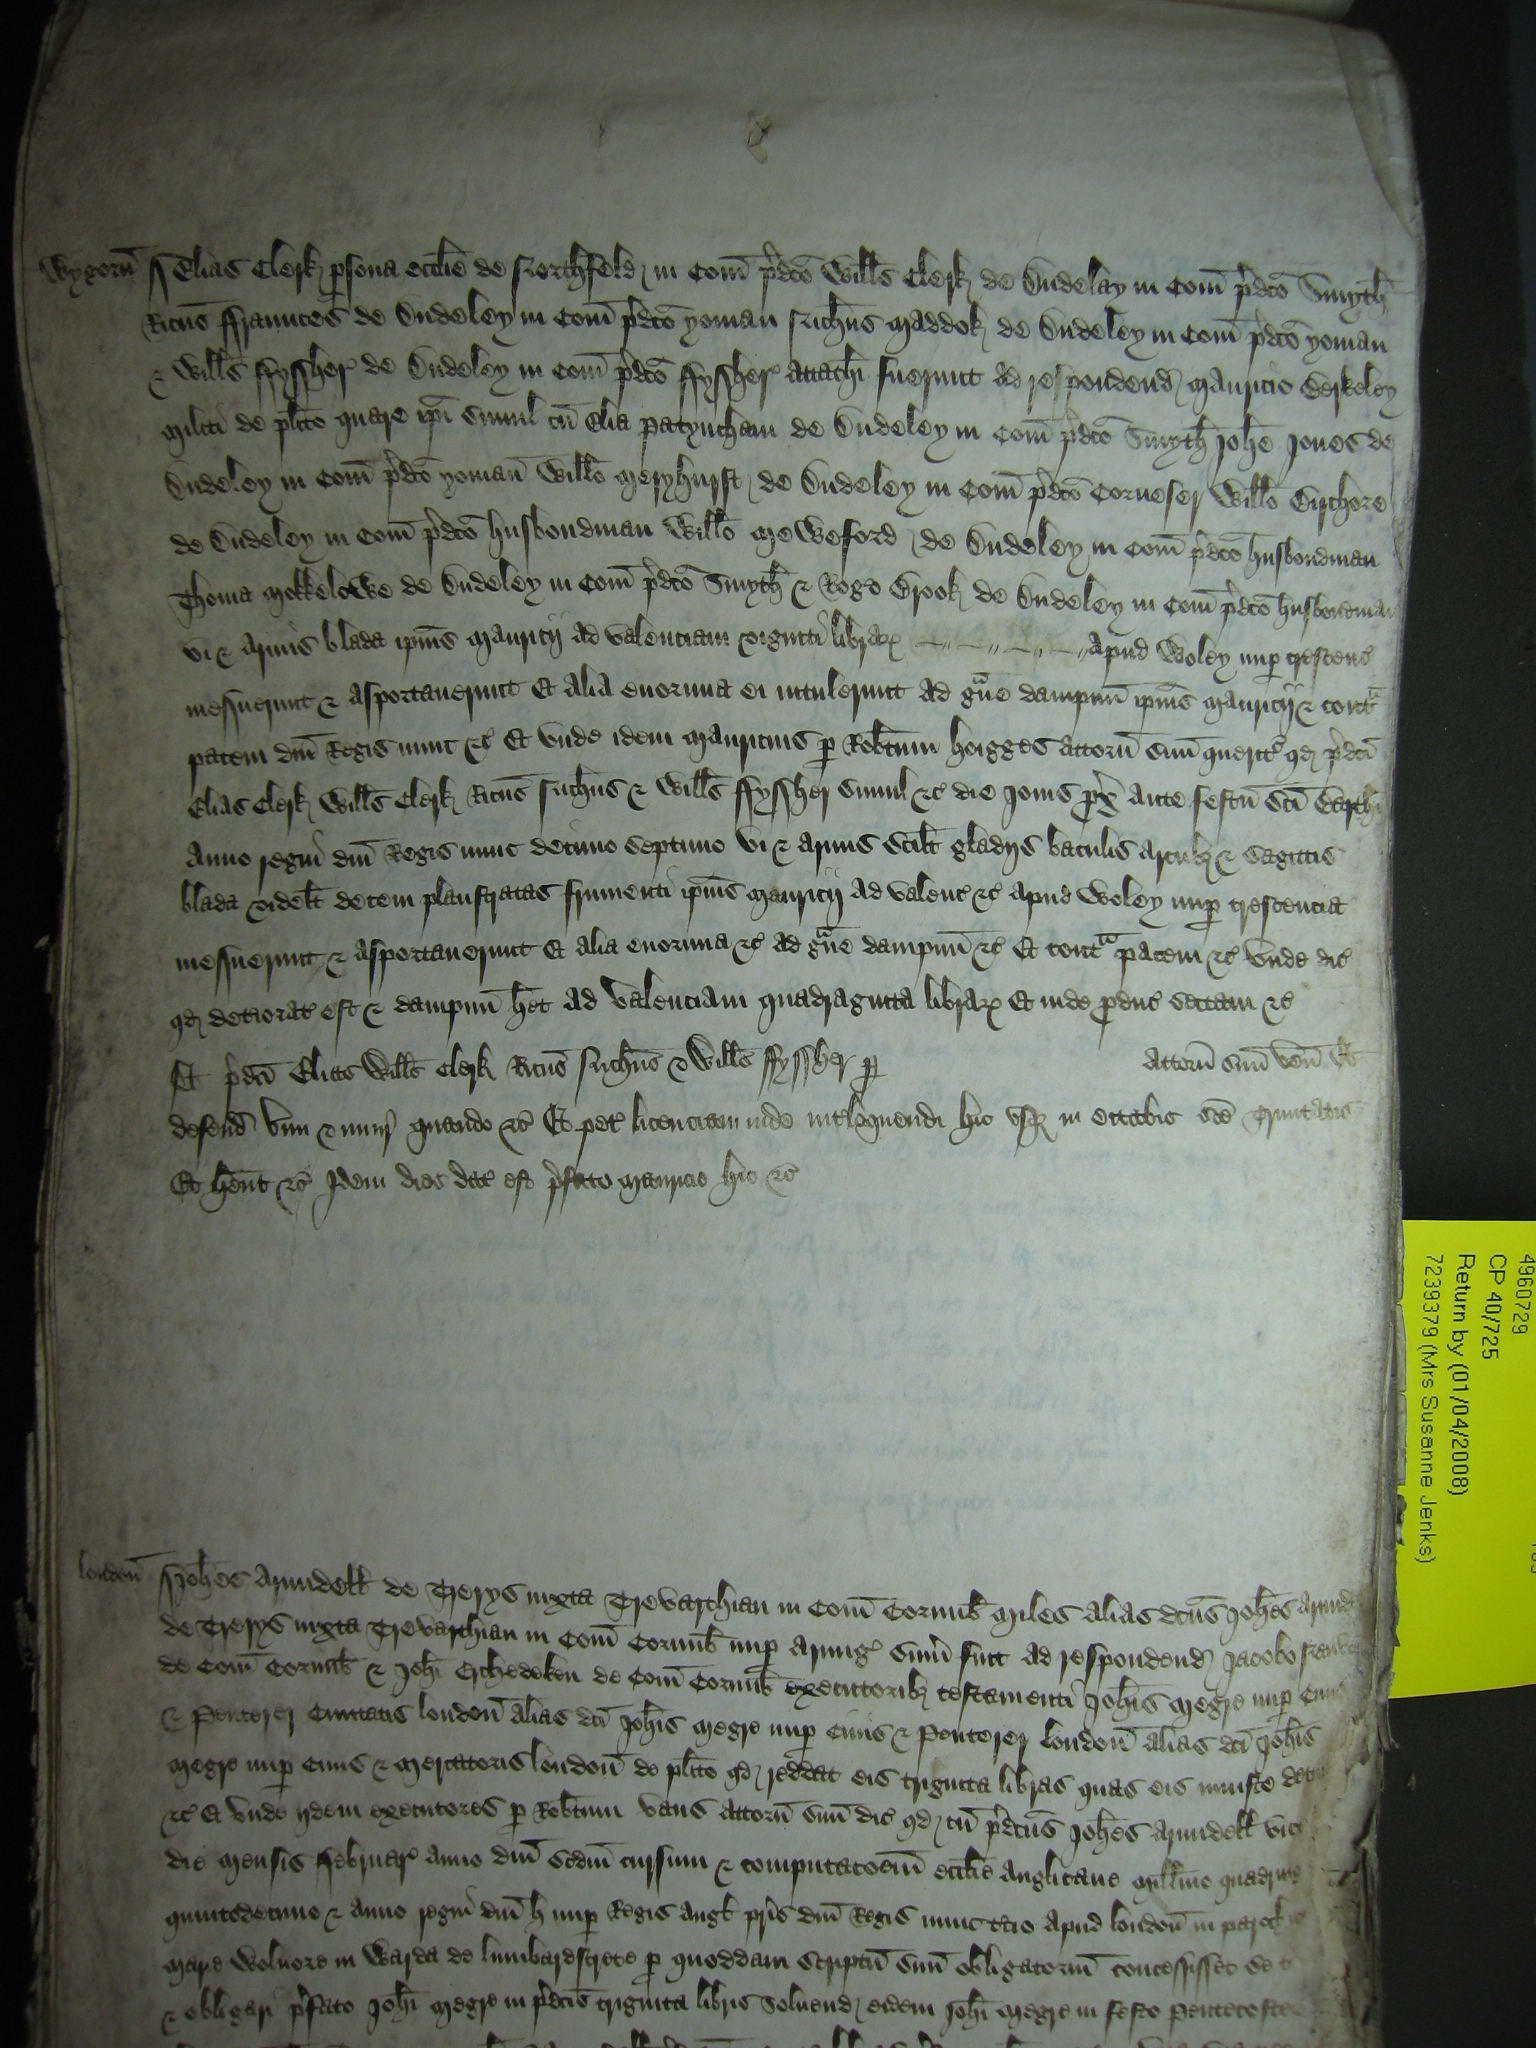 Wygorn̄ Elias Clerk p̱sona ecclīe de Northfeld in Com̄ p̄dc̄o Will̄s Clerk de Duddeley in Com̄ p̄dc̄o Smyth̄
Ric̄us ffraunces de Duddeley in Com̄ p̄dc̄o yoman Ric̄us Maddok de Duddeley in Com̄ p̄dc̄o yoman
& Will̄s ffyssher de Duddeley in Com̄ p̄dc̄o ffyssher attach̄ fuerunt ad respondend Mauricio Berkeley
Militi de pl̄ito quare ip̄i simul cū Elia Patyncham de Duddeley in Com̄ p̄dc̄o Smyth̄ Joh̄e Jones de
Duddeley in Com̄ p̄dc̄o yoman̄ Will̄o Meryhurst de Duddeley in Com̄ p̄dc̄o Corveser Will̄o
de Duddeley in Com̄ p̄dc̄o husbondman Will̄o de Duddeley in Com̄ p̄dc̄o husbondman
Thoma de Duddeley in Com̄ p̄dc̄o Smyth̄ & Roḡo Brook de Duddeley in Com̄ p̄dc̄o husbondman
vi & armis blada ip̄ius Mauricij ad valenciam viginti librar̄ apud Woley nup̱ crescenc̄
messuerunt & asportaverunt Et alia enormia ei intulerunt ad g̊ve dampnū ip̄ius Mauricij & cont̊
pacem dn̄i Regis nunc &c̄ Et unde idem Mauricius p̱ Rob̄tum Hoigges attorn̄ suū querit̄ qd p̄dc̄i
Elias Clerk Will̄s Clerk Ric̄us Ric̄us & Will̄s ffyssher simul &c̄ die Jovis p̱x̄ ante festū sc̄i
Anno regni dn̄i Regis nunc decimo septimo vi & armis scil̄t gladijs baculis arcub & sagittis
blada videl̄t decem plaustratas frumenti ip̄ius Mauricij ad valenc̄ &c̄ apud Woley nup̱ crescencia
messuerunt & asportaverunt Et alia enormia &c̄ ad g̊ve dampnū &c̄ Et cont̊ pacem &c̄ unde dic̄
qd deteriorat̄ est & dampnū h̄et ad valenciam quadraginta librar̄ Et inde p̱duc̄ sectam &c̄
Et p̄dc̄i Elias Will̄s Clerk Ric̄us Ric̄us & Will̄s ffyssher p̱ attorn̄ suū ven̄ &c̄
defend̄ vim & iniur̄ quando &c̄ Et pet̄ licenciam inde int̄loquendi hic usq in octabis sc̄e Trinitatis
Et h̄ent &c̄ Idem dies dat̄ est p̄fato Mauricio hic &c̄
london̄ Joh̄es Arundell de Trerys iuxta Trewarthian in Com̄ Cornub̄ Miles alias dc̄us Joh̄es Arundell
de Trerys iuxta Trewarthian in Com̄ Cornub̄ nup̱ Armiḡ sum̄ fuit ad respondend Jacobo
de Com̄ Cornub̄ & Joh̄i Erchedeken de Com̄ Cornub̄ executorib testamenti Joh̄is Megre nup̱ Civis
& Peuterer Civitatis london̄ alias dc̄i Joh̄is Megre nup̱ Civis & Peuterer london̄ alias dc̄i Joh̄is
Megre nup̱ Civis & Mercatoris london̄ de pl̄ito qd reddat eis triginta libras quas eis iniuste
&c̄ Et unde ijdem executores p̱ Rob̄tum vaus attorn̄ suū dic̄ qd cū p̄dc̄us Joh̄es Arundell
die Mensis ffebruar̄ anno dn̄i sc̄dm cursum & computac̄oem ecclīe Anglicane mill̄imo
quintodecimo & anno regni dn̄i H nup̱ Regis Angl̄ pr̄is dn̄i Regis nunc t̄cio apud london̄ in
Marie Wolnore in Warda de lumbardstrete p̱ quoddam scriptū suū obligatoriū concessisset se
& obligari p̄fato Joh̄i Megre in p̄dc̄is triginta libris solvend eidem Joh̄i Megre in festo
4960729
CP 40/725
Return by (01/04/2008)
7239379 (Mrs Susanne Jenks)